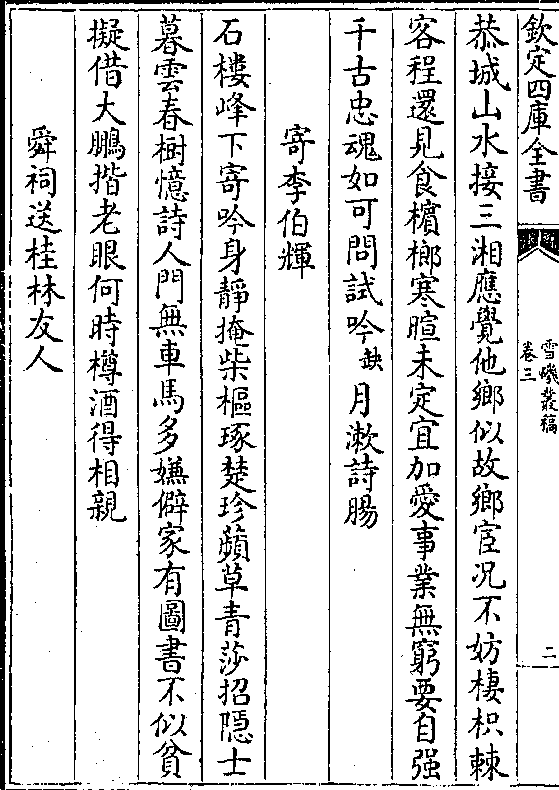 欽定四庫全書
雪磯叢稿
卷三
二
恭城山水接三湘應覺他鄉似故鄉宦况不妨棲枳棘
客程還見食檳榔寒暄未定宜加愛事業無窮要自强
千古忠魂如可問試吟缺月漱詩腸
寄李伯輝
石樓峰下寄吟身靜掩柴樞琢楚珍蘋草青莎招隱士
暮雲春樹憶詩人門無車馬多嫌僻家有圖書不似貧
擬借大鵬揩老眼何時樽酒得相親
舜祠送桂林友人